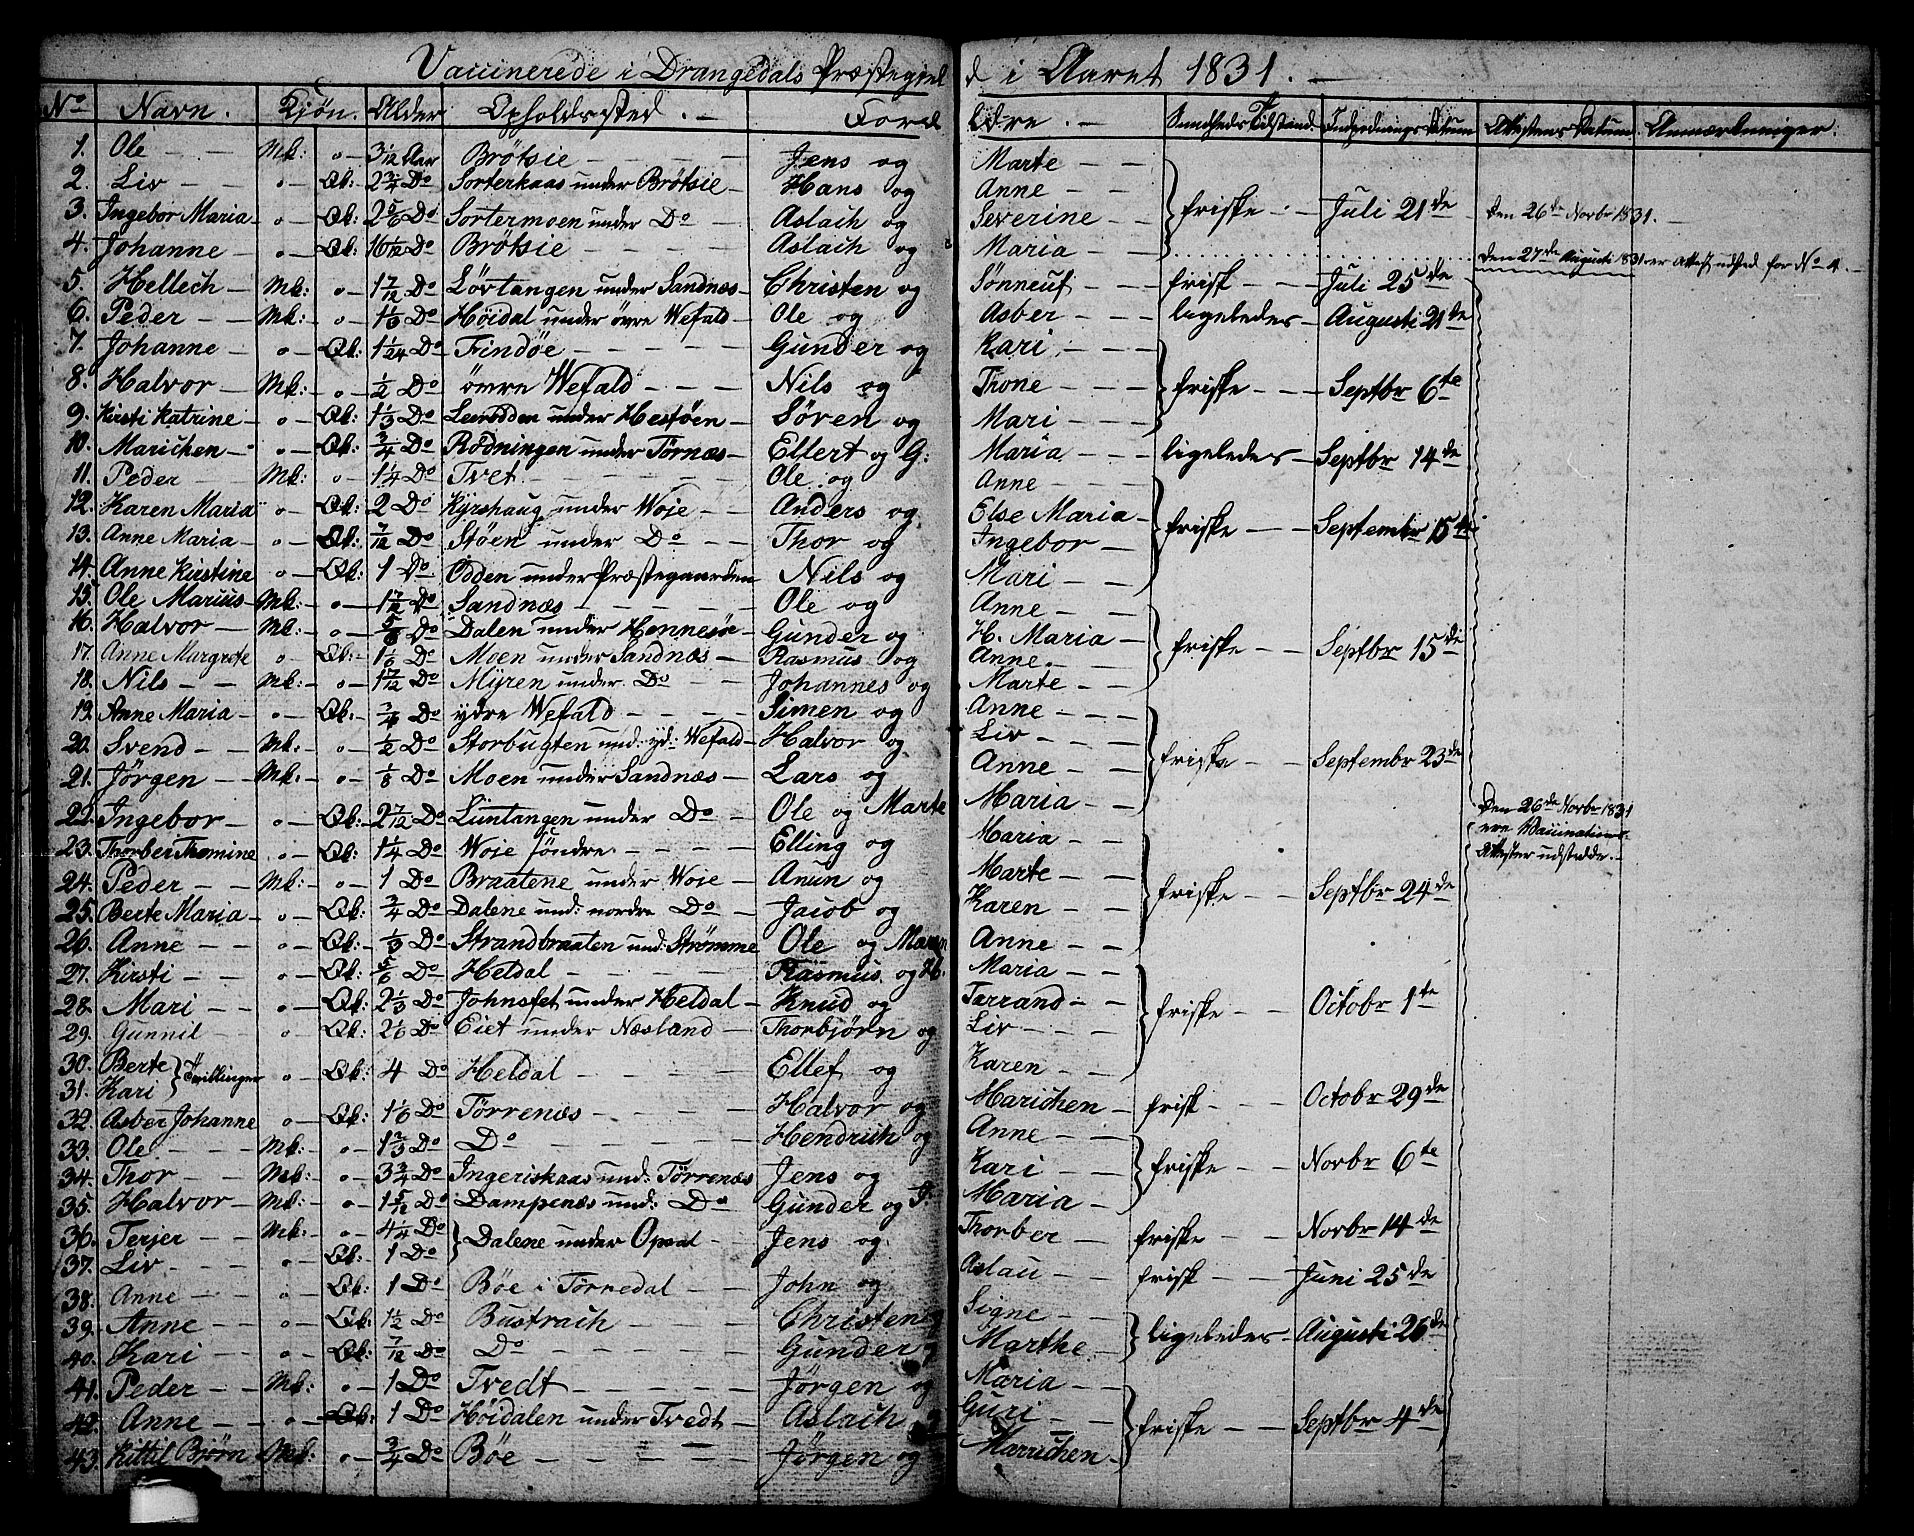 Vaccinerede i Drangedals Præstegield i Aaret 1831.
No Navn. Kjøn. Alder Opholdssted. Forældre. Sundheds Tilstand. Indpodnings Datum Attestens Datum Anmærkninger.
1. Ole Mk: " 3 1/12 Aar Brøtsie Jens og Marte
2. Liv " Qk: 2 3/4 Do Sorterkaas under Brøtsie Hans og Anne
3. Ingebor Maria " Qk: 2 5/6 Do Sortermoen under Do Aslach og Severine friske Juli 21de Den 26de Novbr 1831.
4. Johanne " Qk: Do Brøtsie Aslach og Maria Den 27de Augusti 1831 er Attest udsted for No 4.
5. Hellech Mk: " 1 7/12 Do Løvtangen under Sandnæs Christen og Sønneuf frisk Juli 25de
6. Peder Mk: " 1 1/6 Do Høidal under øvre Wefald Ole og Asber ligeledes Augusti 21de
7. Johanne " Qk: 1 1/24 Do Findøe Gunder og Kari
8. Halvor Mk: " 1/2 Do øvre Wefald Nils og Thone friske Septbr 6te
9. Kirsti Katrine " Qk: 1 1/3 Do under Hestøen Søren og Mari
10. Marichen " Qk: 3/4 Do Rødningen under Tørnæs Ellert og G: Maria ligeledes Septbr 14de
11. Peder Mk: " 1 1/4 Do Tvet Ole og Anne
12. Karen Maria " Qk: 2 Do Kyrshaug under Woje Anders og Else Maria friske September 15de
13. Anne Maria " Qk: 7/12 Do Støen under Do Thor og Ingebor
14. Anne Kirstine " Qk: 1 Do Odden under Præstegaarden Nils og Mari
15. Ole Marius Mk: " 1 7/12 Do Sandnæs Ole og Anne
16. Halvor Mk: " 5/6 Do Dalen under Hennesøe Gunder og H. Maria friske Septbr 15de
17. Anne Margrete " Qk: 1 1/6 Do Moen under Sandnæs Rasmus og Anne
18. Nils Mk: " 1 7/12 Do Myren under Do Johannes og Marte
19. Anne Maria " Qk: 3/4 Do ydre Wefald Simen og Anne
20. Svend Mk: " 1/2 Do Storbugten und: yd: Wefald Halvor og Liv
21. Jørgen Mk: " 1/8 Do Moen under Sandnæs Lars og Anne friske Septembr 23de
22. Ingebor " Qk: 2 7/12 Do Luntangen under Do Ole og Marte Maria Den 26de Novbr 1831
23. Thorber Thomine " Qk: 1 1/4 Do Woje søndre Elling og Maria ere Vaccinations
24. Peder Mk: " 1 Do Braatene under Woje Anun og Marte Attester udstædde.
25. Berte Maria " Qk: 3/4 Do Dalene und: nordre Do Jacob og Karen friske Septbr 24de
26. Anne " Qk: 1/3 Do Strandbraaten und: Strømme Ole og Maren Anne
27. Kirsti " Qk: 5/6 Do Heldal Rasmus og H. Maria
28. Mari " Qk: 2 1/3 Do Johnsfet under Heldal Knud og Tarrand friske Octobr 1te
29. Gunnil " Qk: 2 1/6 Do Eiet under Næsland Thorbjørn og Liv
30. Berte } Tvillinger " Qk: 4 Do Heldal Ellef og Karen
31. Kari
32. Asber Johanne " Qk: 1 1/6 Do Tørrenæs Halvor og Marichen frisk Octobr 29de
33. Ole Mk: " 1 2/3 Do Do Hendrich og Anne
34. Thor Mk: " 3 3/4 Do Ingeriskaas und: Tørrenæs Jens og Kari friske Novbr 6te
35. Halvor Mk: " 1 5/12 Do Dampenæs und: Do Gunder og Maria
36. Terjer Mk: " 4 1/4 Do } Dalene under Opsal Jens og Thorber friske Novbr 14de
37. Liv " Qk: 1 Do
38. Anne " Qk: 1 Do Bøe i Tørnedal John og Aslau frisk Juni 25de
39. Anne " Qk: 1 1/2 Do Bustrach Christen og Signe ligeledes Augusti 26de
40. Kari " Qk: 7/12 Do Do Gunder og Marthe
41. Peder Mk: " 1 Do Tvedt Jørgen og Maria
42. Anne " Qk: 1 Do Høidalen under Tvedt Aslach og Guri friske Septbr 4de
43. Kittil Bjørn Mk: " 3/4 Do Bøe Jørgen og Marichen